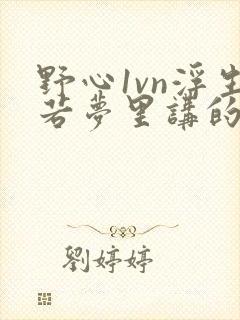 野心1vn浮生
若夢里講的
劉婷婷